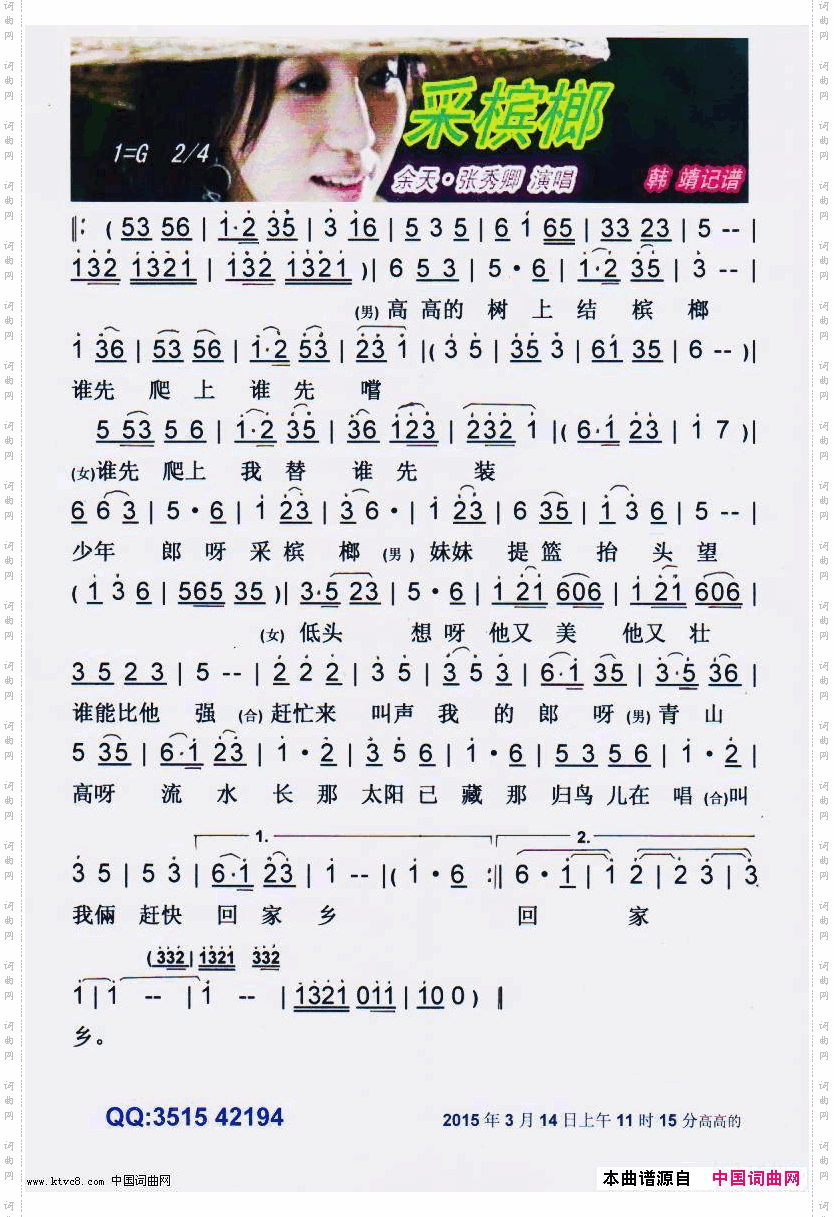 采槟榔
1=G 2/4
余天·张秀卿 演唱
韩 靖记谱
‖: ( 53 56 | 1·2 35 | 3 16 | 5 3 5 | 6 1 65 | 33 23 | 5 -- |
132 1321 | 132 1321 )| 6 5 3 | 5 · 6 | 1·2 35 | 3 -- |
(男) 高 高的 树 上 结 槟 榔
1 36 | 53 56 | 1·2 53 | 23 1 |( 3 5 | 35 3 | 61 35 | 6 -- )|
谁先 爬 上 谁 先 嚐
5 53 5 6 | 1·2 35 | 36 123 | 232 1 |( 6·1 23 | 1 7 )|
(女)谁先 爬上 我 替 谁 先 装
6 6 3 | 5 · 6 | 1 23 | 3 6 · | 1 23 | 6 35 | 1 3 6 | 5 -- |
少年 郎 呀 采 槟 榔 (男) 妹妹 提 篮 抬 头 望
( 1 3 6 | 565 35 )| 3·5 23 | 5 · 6 | 1 21 606 | 1 21 606 |
(女) 低头 想 呀 他又 美 他又 壮
3 5 2 3 | 5 -- | 2 2 2 | 3 5 | 3 5 3 | 6·1 35 | 3·5 36 |
谁能比他 强 (合) 赶忙来 叫声 我 的 郎 呀 (男) 青 山
5 35 | 6·1 23 | 1 · 2 | 3 5 6 | 1 · 6 | 5 3 5 6 | 1 · 2 |
高呀 流 水 长 那 太阳 已 藏 那 归鸟 儿在 唱 (合)叫
1. 2.
3 5 | 5 3 | 6·1 23 | 1 -- |( 1 · 6 :‖ 6 · 1 | 1 2 | 2 3 | 3
我俩 赶快 回 家 乡 回 家
(332 | 1321 332
1 | 1 -- | 1 -- | 1321 011 | 10 0 ) ‖
乡。
QQ:3515 42194
2015 年 3 月 14 日上午 11 时 15 分高高的
www.ktvc8.com 中国词曲网
本曲谱源自 中国词曲网